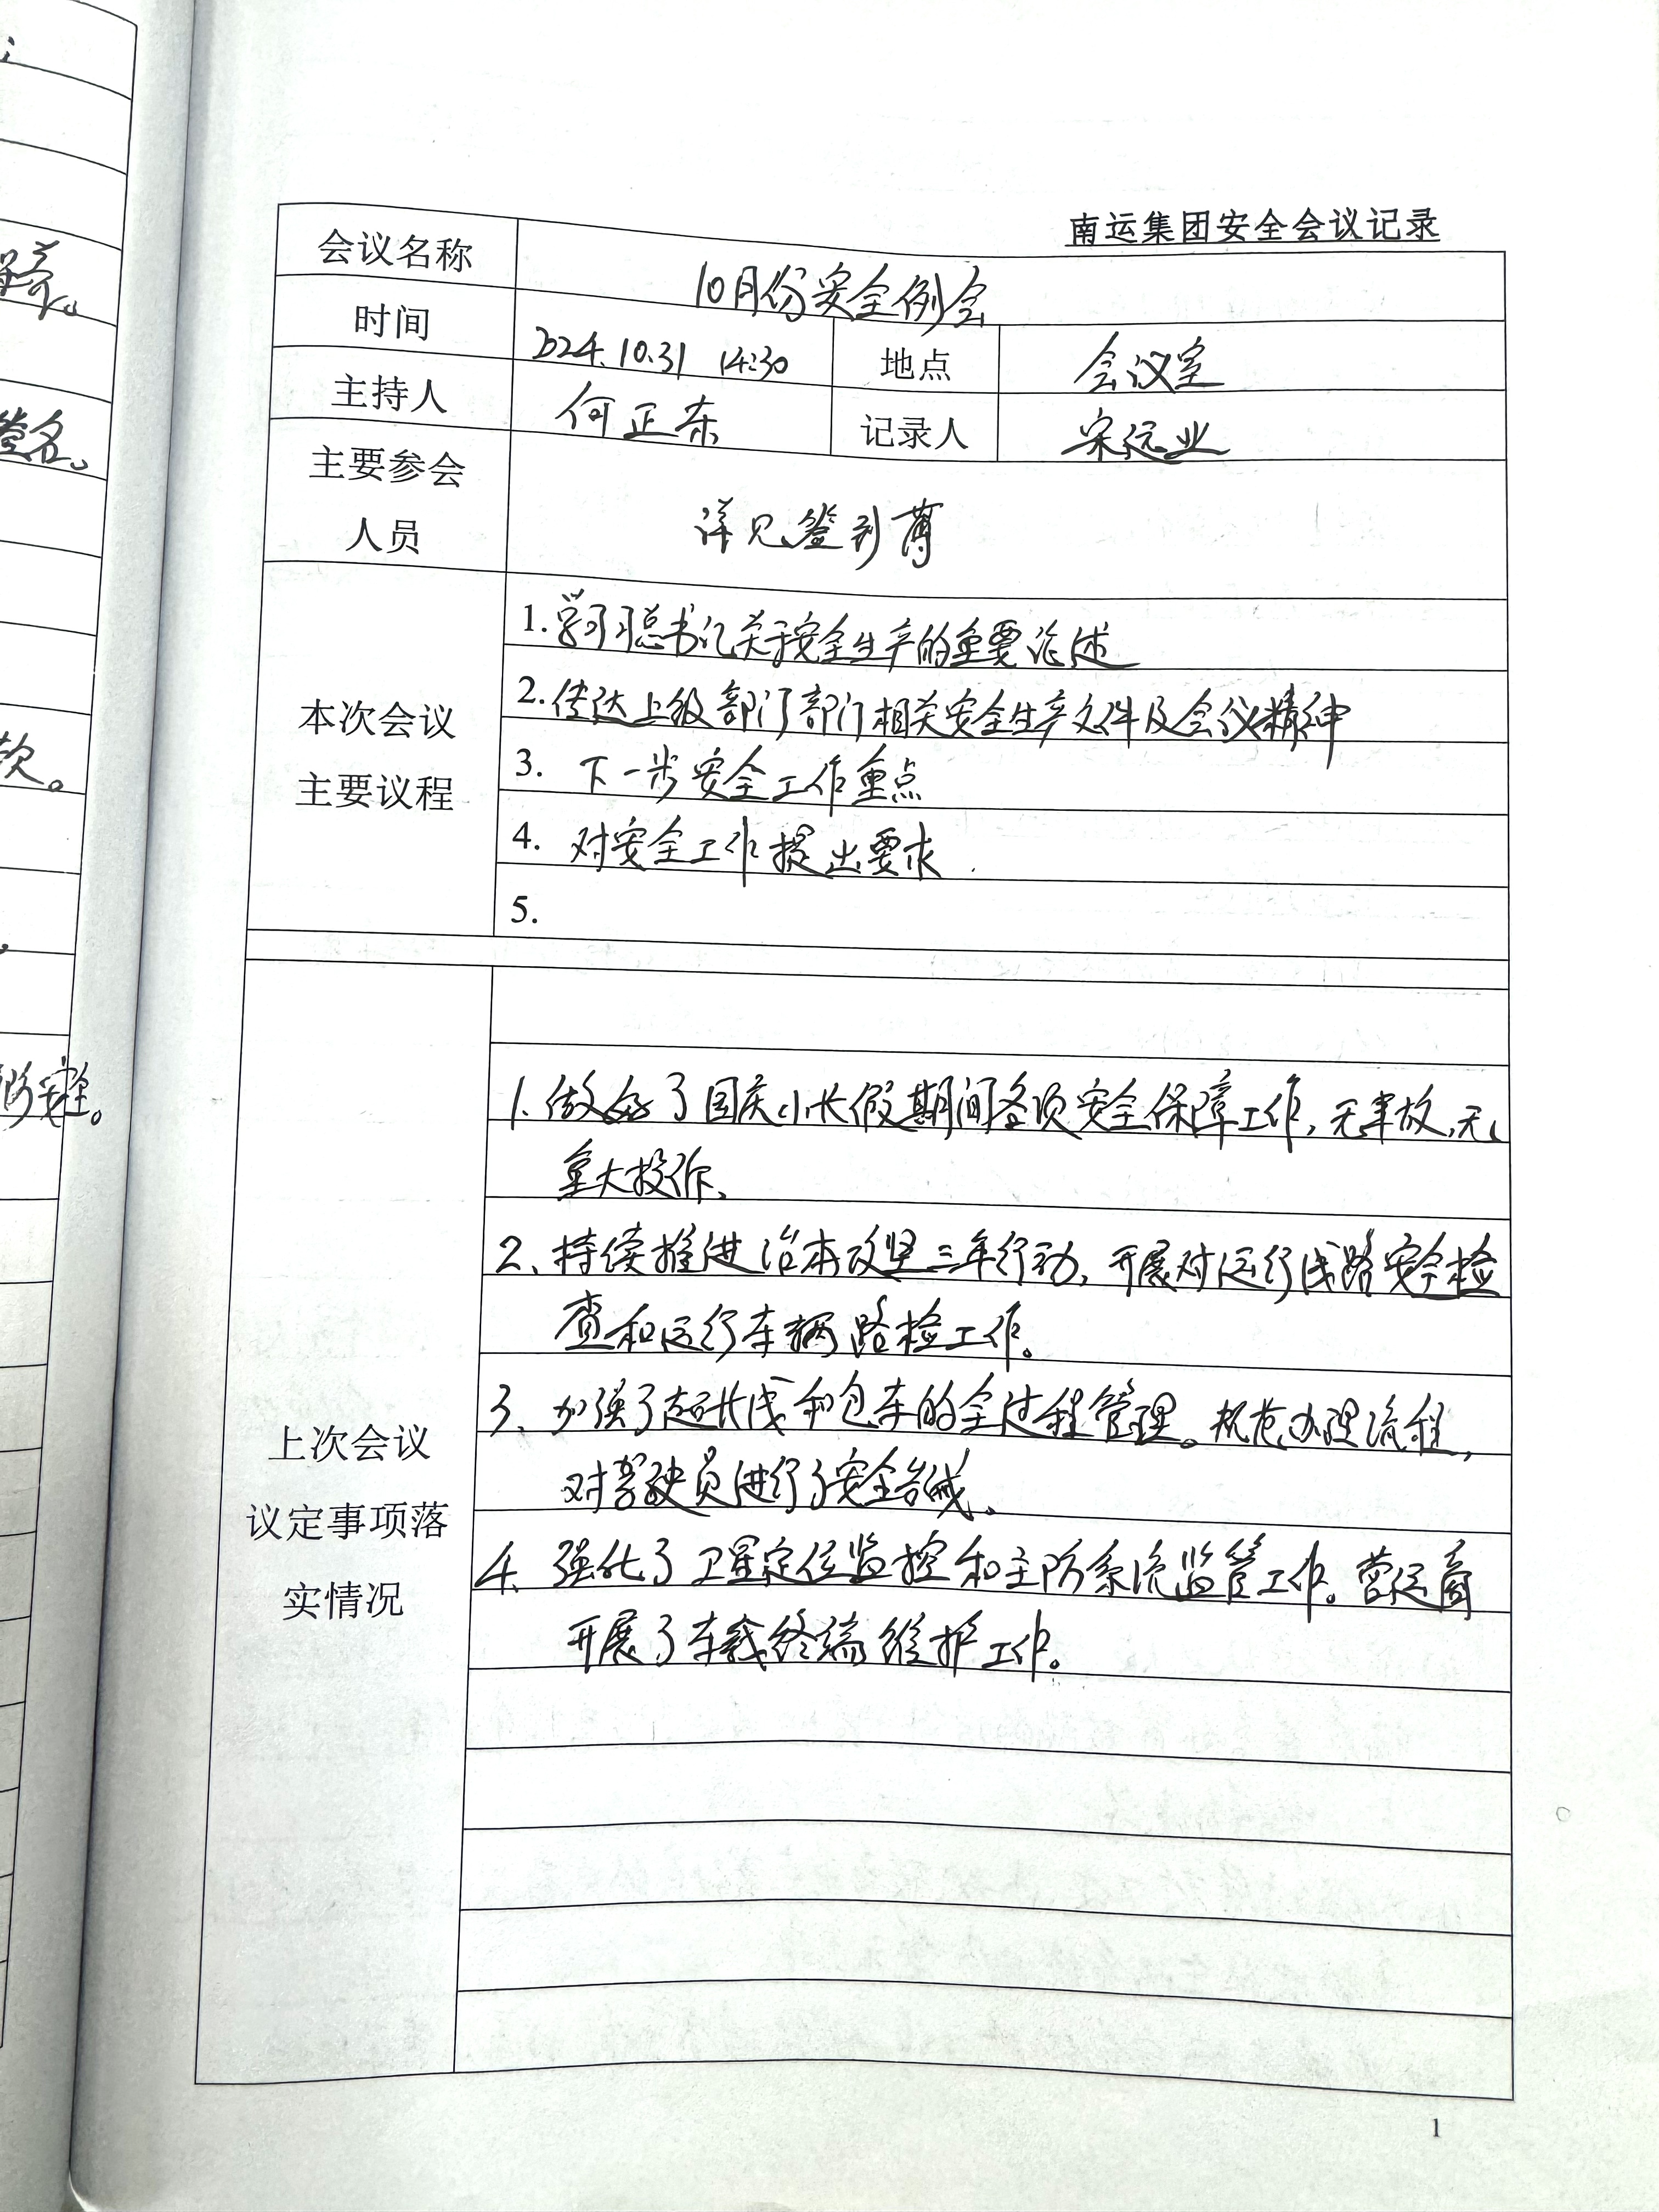 南运集团安全会议记录
会议名称 10月份安全例会
时间 2024.10.31 14:30 地点 会议室
主持人 何正东 记录人 宋远业
主要参会
人员
详见签到薄
本次会议
主要议程
1.学习习总书记关于安全生产的重要论述
2.传达上级部门部门相关安全生产文件及会议精神
3. 下一步安全工作重点
4. 对安全工作提出要求.
5.
上次会议
议定事项落
实情况
1、做好了国庆小长假期间各项安全保障工作,无事故,无
重大投诉、
2、持续推进治本攻坚三年行动,开展对运行线路安全检
查和运行车辆路检工作。
3、加强了超长线和包车的全过程管理。规范办理流程,
对驾驶员进行了安全告诫。
4、强化了卫星定位监控和主防系统监管工作。营运商
开展了车载终端维护工作。
1
签名。
款。
防安全。